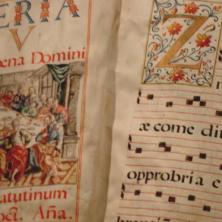 ERIA
V
ena Domini
atutinum
oct. Aña.
Z
æ come dit
opprobria e